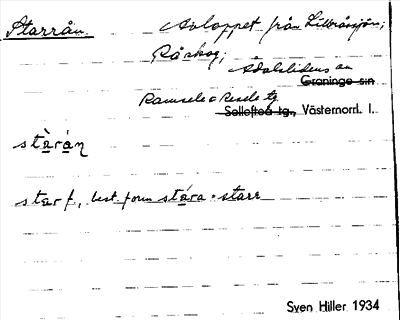 Starrån.
Avloppet från Lillråsjön;
Råskog;
Ådalslidens an
Graninge sn
Ramsele o Resele tg
Sollefteå tg., Västernorrl. l.
stạ̀rán
star f, best. form stára = starr
Sven Hiller 1934